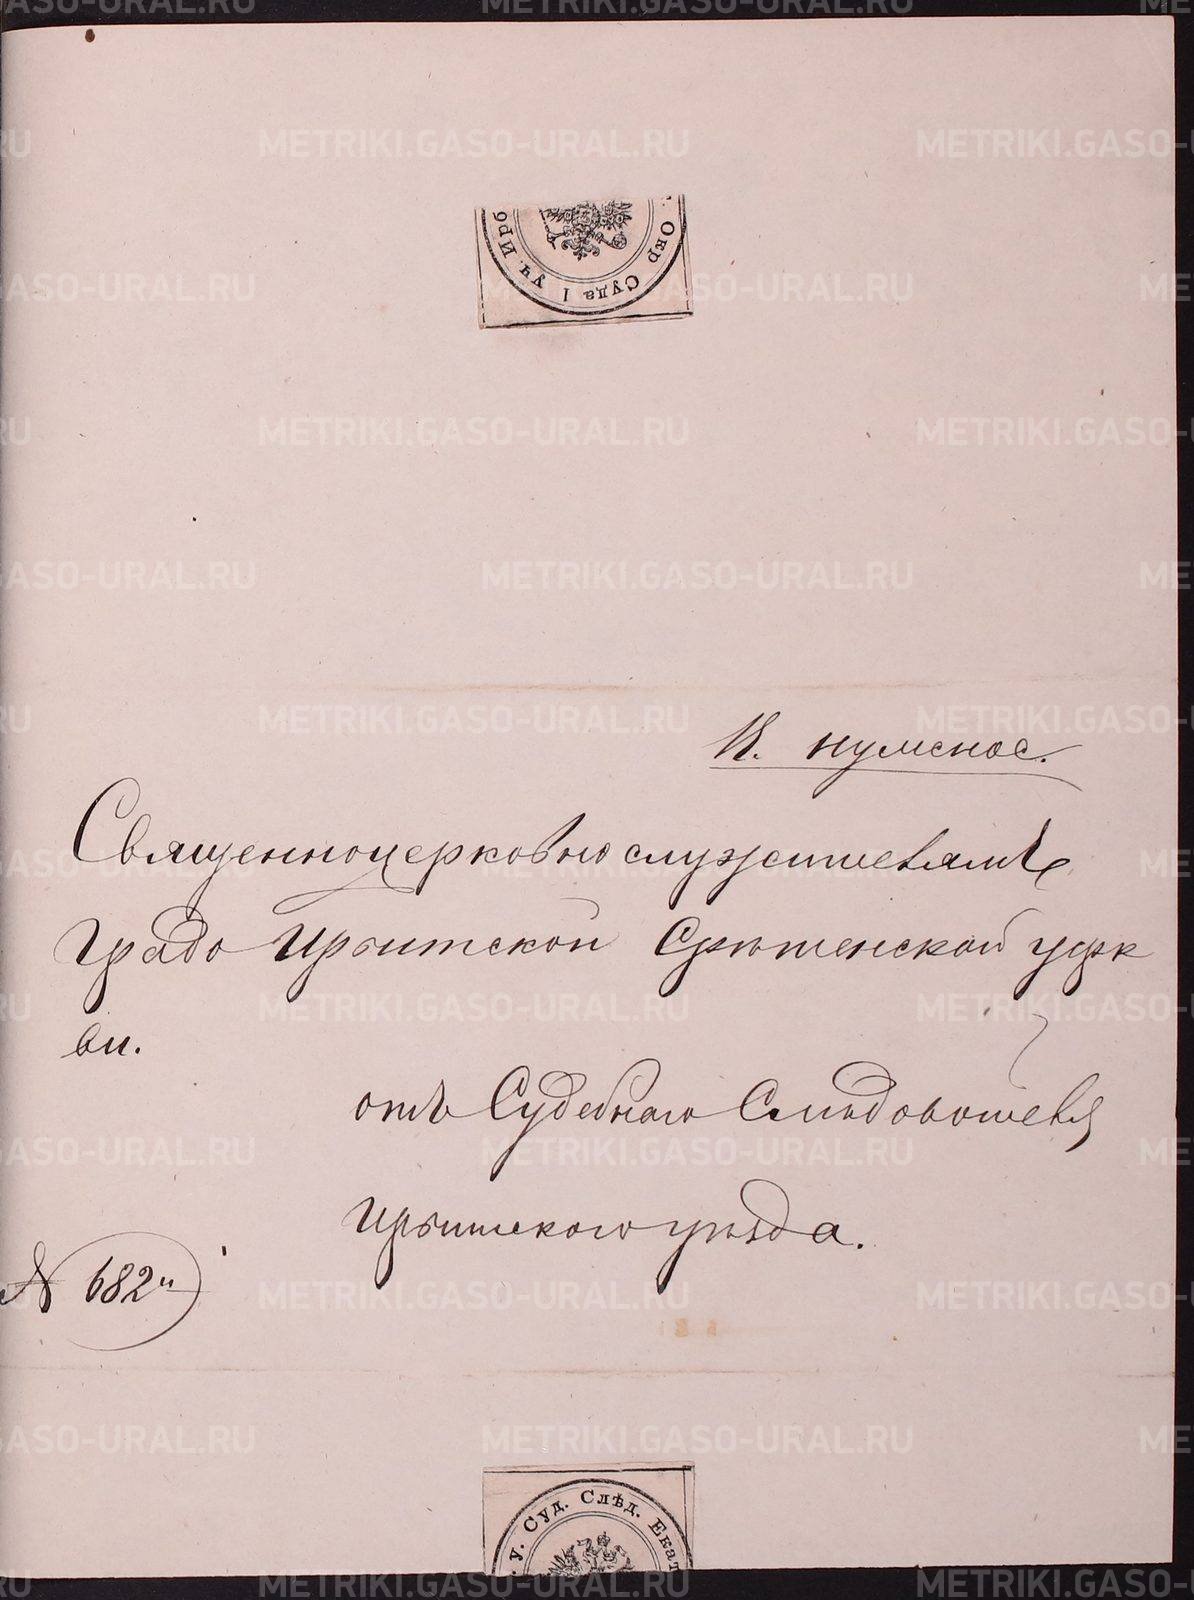 Окр Суда I уч. Ирб
К. нужное.
Священноцерковно служителямъ
Градо Ирбитской Срѣтенской церк
ви.
отъ Судебнаго Слѣдователя
Ирбитскаго уѣзда.
№ 682
у. Суд. Слѣд. Екат
METRIKI.GASO-URAL.RU